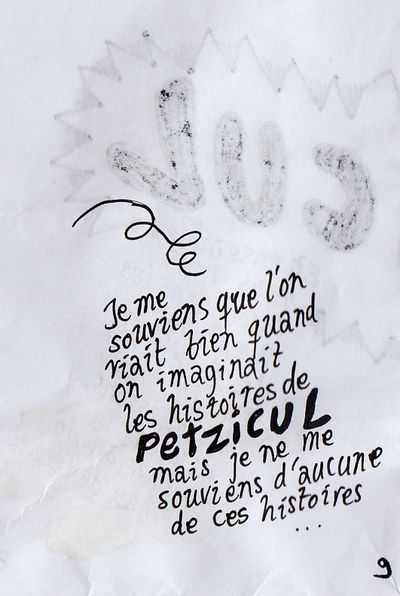 Je me
souviens que l'on
riait bien quand
on imaginait
les histoires de
PETZICUL
mais je ne me
souviens d'aucune
de ces histoires
...
9